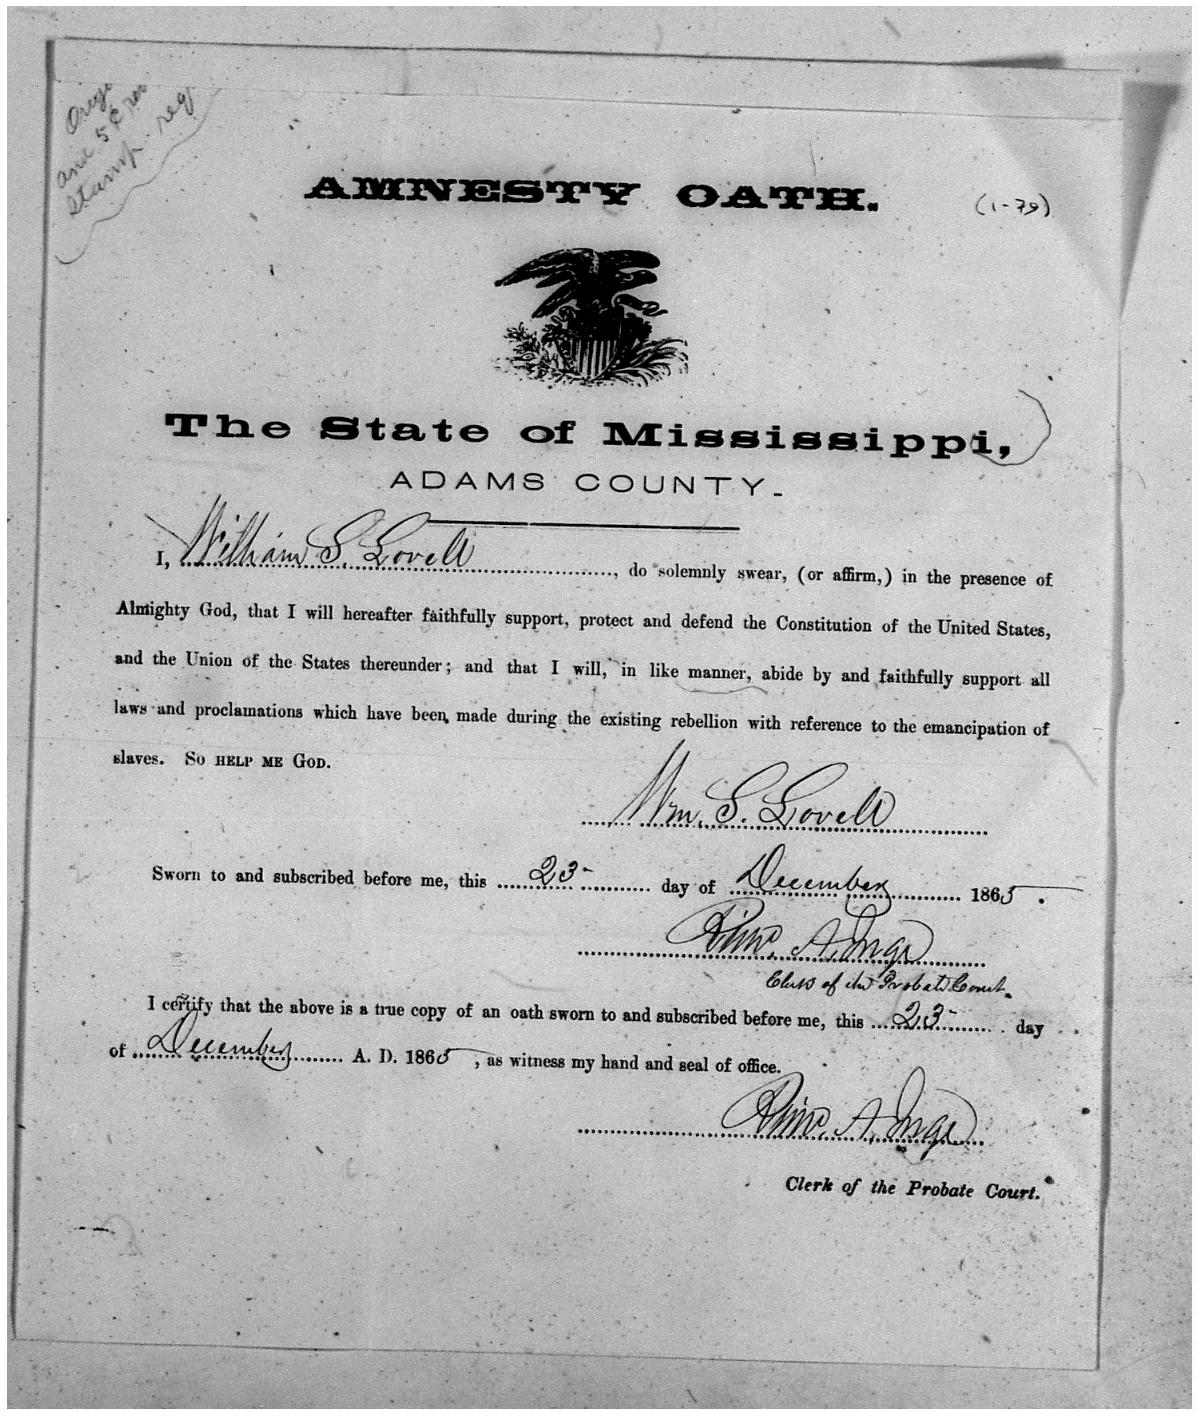 Orig
and 5¢ rev
stamp req
AMNESTY OATH.
(1-79)
The State of Mississippi,
ADAMS COUNTY.
I, William S. Lovell, do solemnly swear, (or affirm,) in the presence of
Almighty God, that I will hereafter faithfully support, protect and defend the Constitution of the United States,
and the Union of the States thereunder; and that I will, in like manner, abide by and faithfully support all
laws and proclamations which have been made during the existing rebellion with reference to the emancipation of
slaves. So HELP ME GOD.
Wm. S. Lovell
Sworn to and subscribed before me, this 23 day of December 1865.
A. Inge
Clerk of the Probate Court.
I certify that the above is a true copy of an oath sworn to and subscribed before me, this 23 day
of December A. D. 1865, as witness my hand and seal of office.
A. Inge
Clerk of the Probate Court.